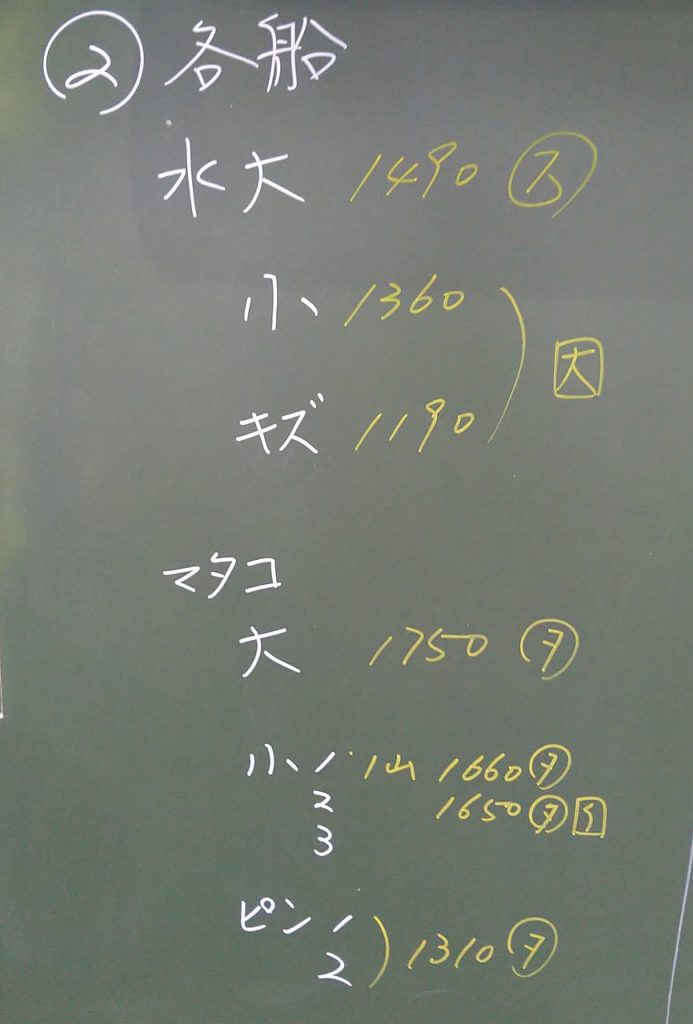 ② 各船
水大 1490
小 1360
大
キズ 1190
マタコ
大 1750 ヲ
小 1 1山 1660 ヲ
2 1650 ヲ
3
ピン 1
2 1310 ヲ